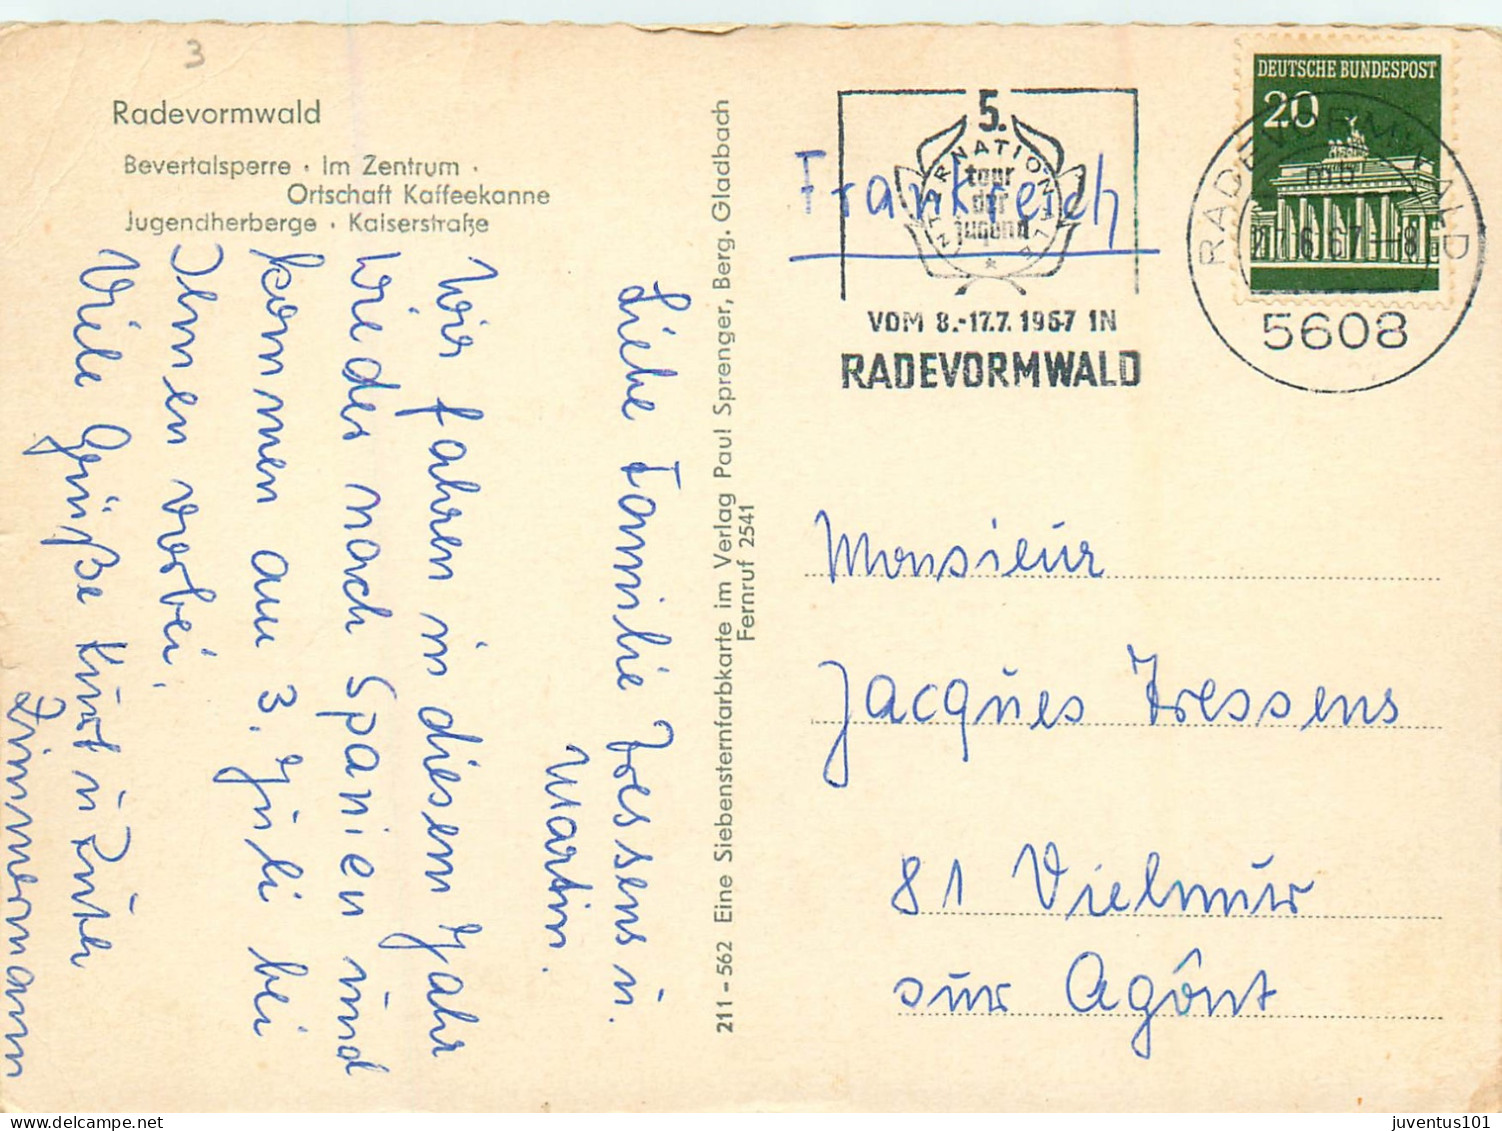 3
Radevormwald
Bevertalsperre · Im Zentrum ·
Ortschaft Kaffeekanne
Jugendherberge · Kaiserstraße
Liebe Familie Tressens u.
Martin.
Wir fahren in diesem Jahr
wieder nach Spanien und
kommen am 3. Juli bei
Ihnen vorbei.
Viele Grüße Kurt u. Ruth
Zimmermann
211 – 562 Eine Siebensternfarbkarte im Verlag Paul Sprenger, Berg. Gladbach
Fernruf 2541
Frankreich
5.
INTERNATIONALE
tour
der
jugend
VOM 8.-17.7. 1967 IN
RADEVORMWALD
DEUTSCHE BUNDESPOST
20
RADEVORMWALD
mb
27.6.67.–8
5608
Monsieur
Jacques Tressens
81 Vielmur
sur Agôut
juventus101